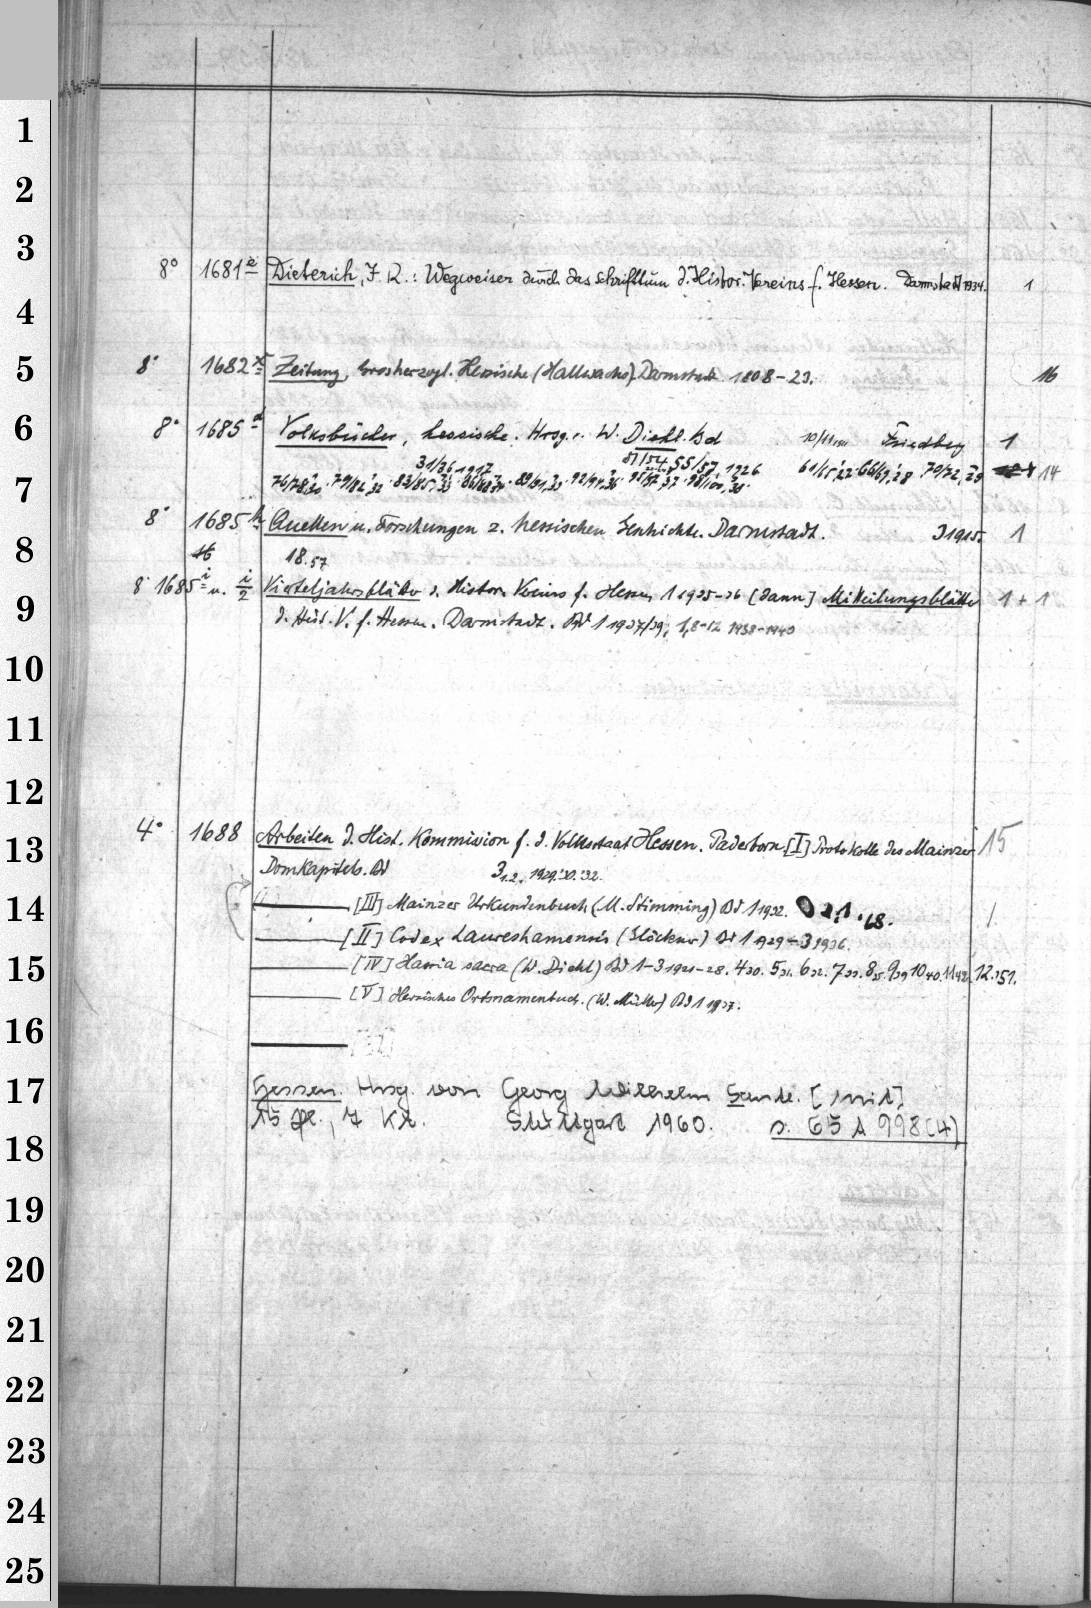 1
2
3
8° 1681 e Dieterich, J. R.: Wegweiser durch das Schrifttum d. Histor. Vereins f. Hessen. Darmstadt 1934. 1
4
5
8° 1682 x Zeitung, Grosherzogl. Hessische (Hallwachs) Darmstadt 1808-23. 16
6
8° 1685 d Volksbücher, hessische. Hrsg. v. W. Diehl. Bd 10/11 Friedberg 1
31/36, 1917 51/54, 55/57, 1926 61/65,'27 66/69,'28 70/72,'29 14
7
8° 1685 h Quellen u. Forschungen z. hessischen Geschichte. Darmstadt. 3 1915. 1
8
16 18.57
8° 1685 i u. i/2 Vierteljahrsblätter d. Histor. Vereins f. Hessen 1 1935-36 [dann] Mitteilungsblätter 1+1
9
d. Hist. V. f. Hessen. Darmstadt. Bd 1 1937/39, 1,8-12 1938-1940
10
11
12
4° 1688 Arbeiten d. Hist. Kommission f. d. Volksstaat Hessen. Paderborn [I] Protokolle des Mainzer 15
13
Domkapitels. Bd 3 1.2. 1929.'30.'32.
14
[III] Mainzer Urkundenbuch (M. Stimming) Bd 1 1932. 2,1.68.
[II] Codex Laureshamensis (Glöckner) Bd 1 1929-3 1936.
15
[IV] Hassia sacra (W. Diehl) Bd 1-3 1921-28. 4 30. 5 31. 6 32. 7 33. 8 35. 9 39 10 40. 11 42. 12.'51.
[V] Hessisches Ortsnamenbuch. (W. Müller) Bd 1 1937.
16
17
Hessen. Hrsg. von Georg Wilhelm Sante. [mit]
15 Pl., 7 Kt. Stuttgart 1960. s. 65 A 998(4)
18
19
20
21
22
23
24
25